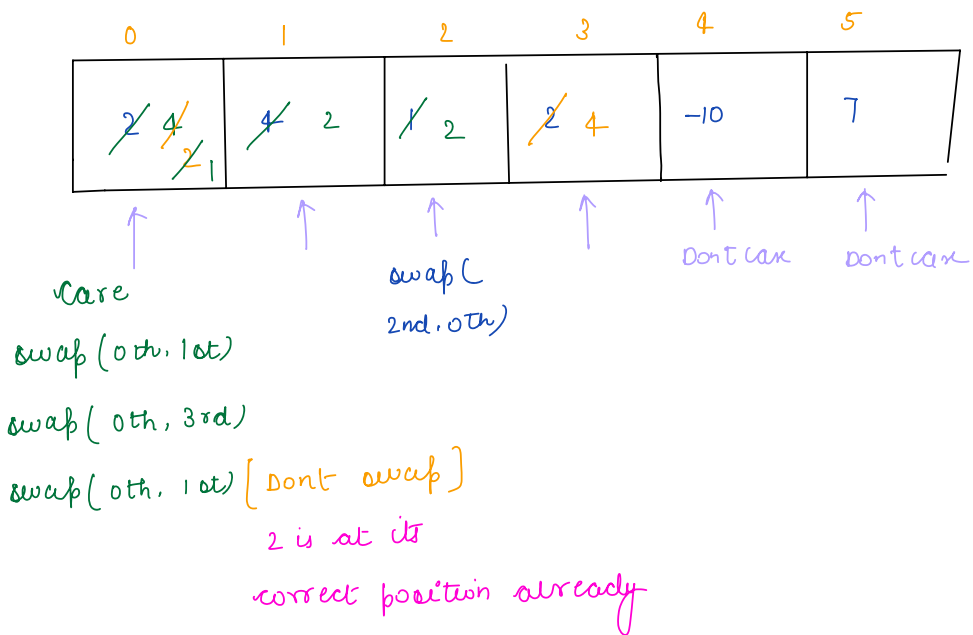 0 1 2 3 4 5
2 4 2 1 4 2 1 2 2 4 -10 7
Dont care Dont care
care
swap(
2nd, 0th)
swap(0th, 1st)
swap(0th, 3rd)
swap(0th, 1st) [Dont swap]
2 is at its
correct position already